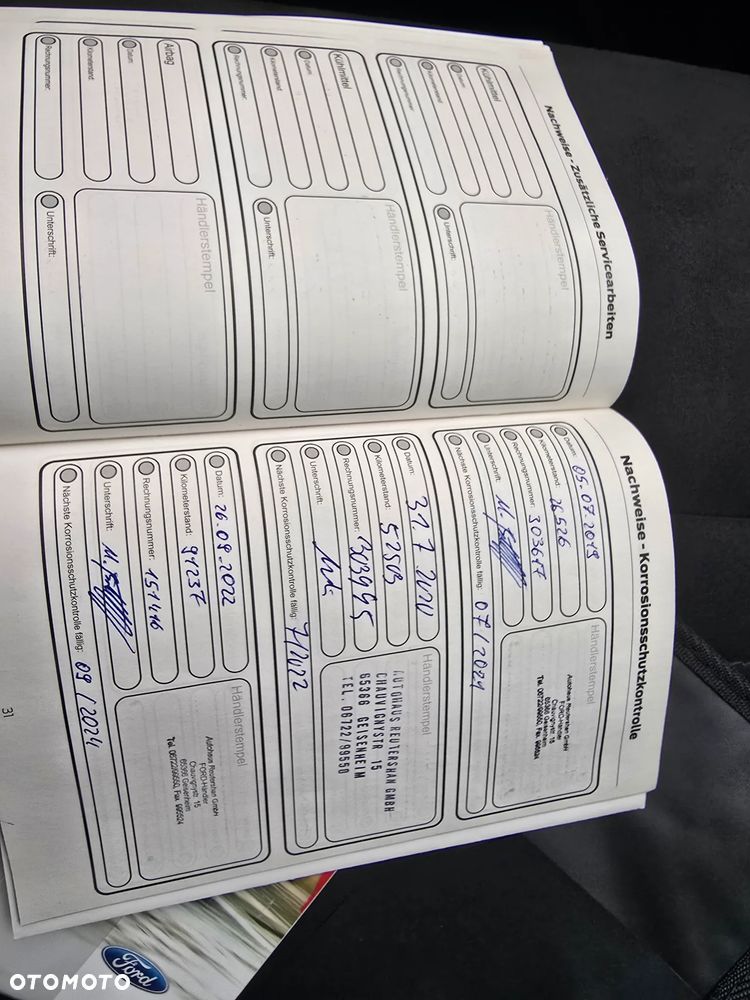 Nachweise - Zusätzliche Servicearbeiten
Kühlmittel
Datum:
Kilometerstand:
Rechnungsnummer:
Händlerstempel
Unterschrift:
Kühlmittel
Datum:
Kilometerstand:
Rechnungsnummer:
Händlerstempel
Unterschrift:
Airbag
Datum:
Kilometerstand:
Rechnungsnummer:
Händlerstempel
Unterschrift:
Nachweise - Korrosionsschutzkontrolle
Datum: 05.07.2019
Kilometerstand: 26526
Rechnungsnummer: 303677
Unterschrift:
Nächste Korrosionsschutzkontrolle fällig: 07/2021
Händlerstempel
Autohaus Reutershan GmbH
FORD-Händler
Chauvignystr. 15
65366 Geisenheim
Tel. 06722/99550, Fax 995524
Datum: 31.7.2020
Kilometerstand:
Rechnungsnummer:
Unterschrift:
Nächste Korrosionsschutzkontrolle fällig: 7/2022
Händlerstempel
AUTOHAUS REUTERSHAN GMBH
CHAUVIGNYSTR 15
65366 GEISENHEIM
TEL. 06722/99550
Datum: 26.09.2022
Kilometerstand: 91237
Rechnungsnummer: 151416
Unterschrift:
Nächste Korrosionsschutzkontrolle fällig: 09/2024
Händlerstempel
Autohaus Reutershan GmbH
FORD-Händler
Chauvignystr. 15
65366 Geisenheim
Tel. 06722/99550, Fax 995524
31
Ford
OTOMOTO